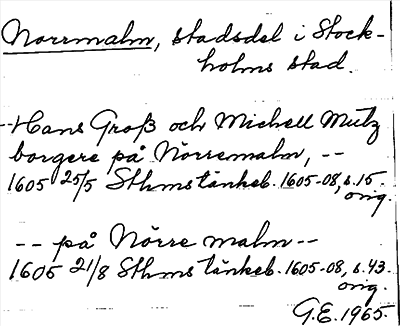 Norrmalm, stadsdel i Stock-
holms stad.
--Hans Groß och Michell Mutz
borgere på Nörremalm, --
1605 25/5 Sthms tänkeb. 1605-08, s. 15.
orig.
-- på Nörre malm --
1605 21/8 Sthms tänkeb. 1605-08, s. 43.
orig.
G.E. 1965.